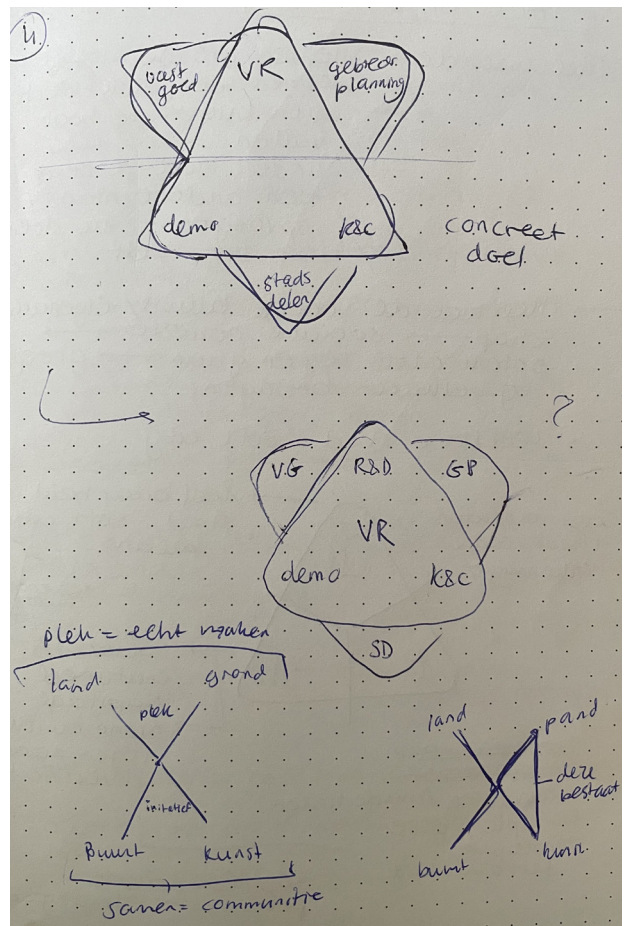 VR
vast
goed
gebieds
planning
demo
K&C
concreet
doel
stads
delen
?
VG
R&D
GP
VR
demo
K&C
SD
plek = echt maken
land
grond
plek
initiatief
Buurt
kunst
samen = communitie
land
pand
deze
bestaat
buurt